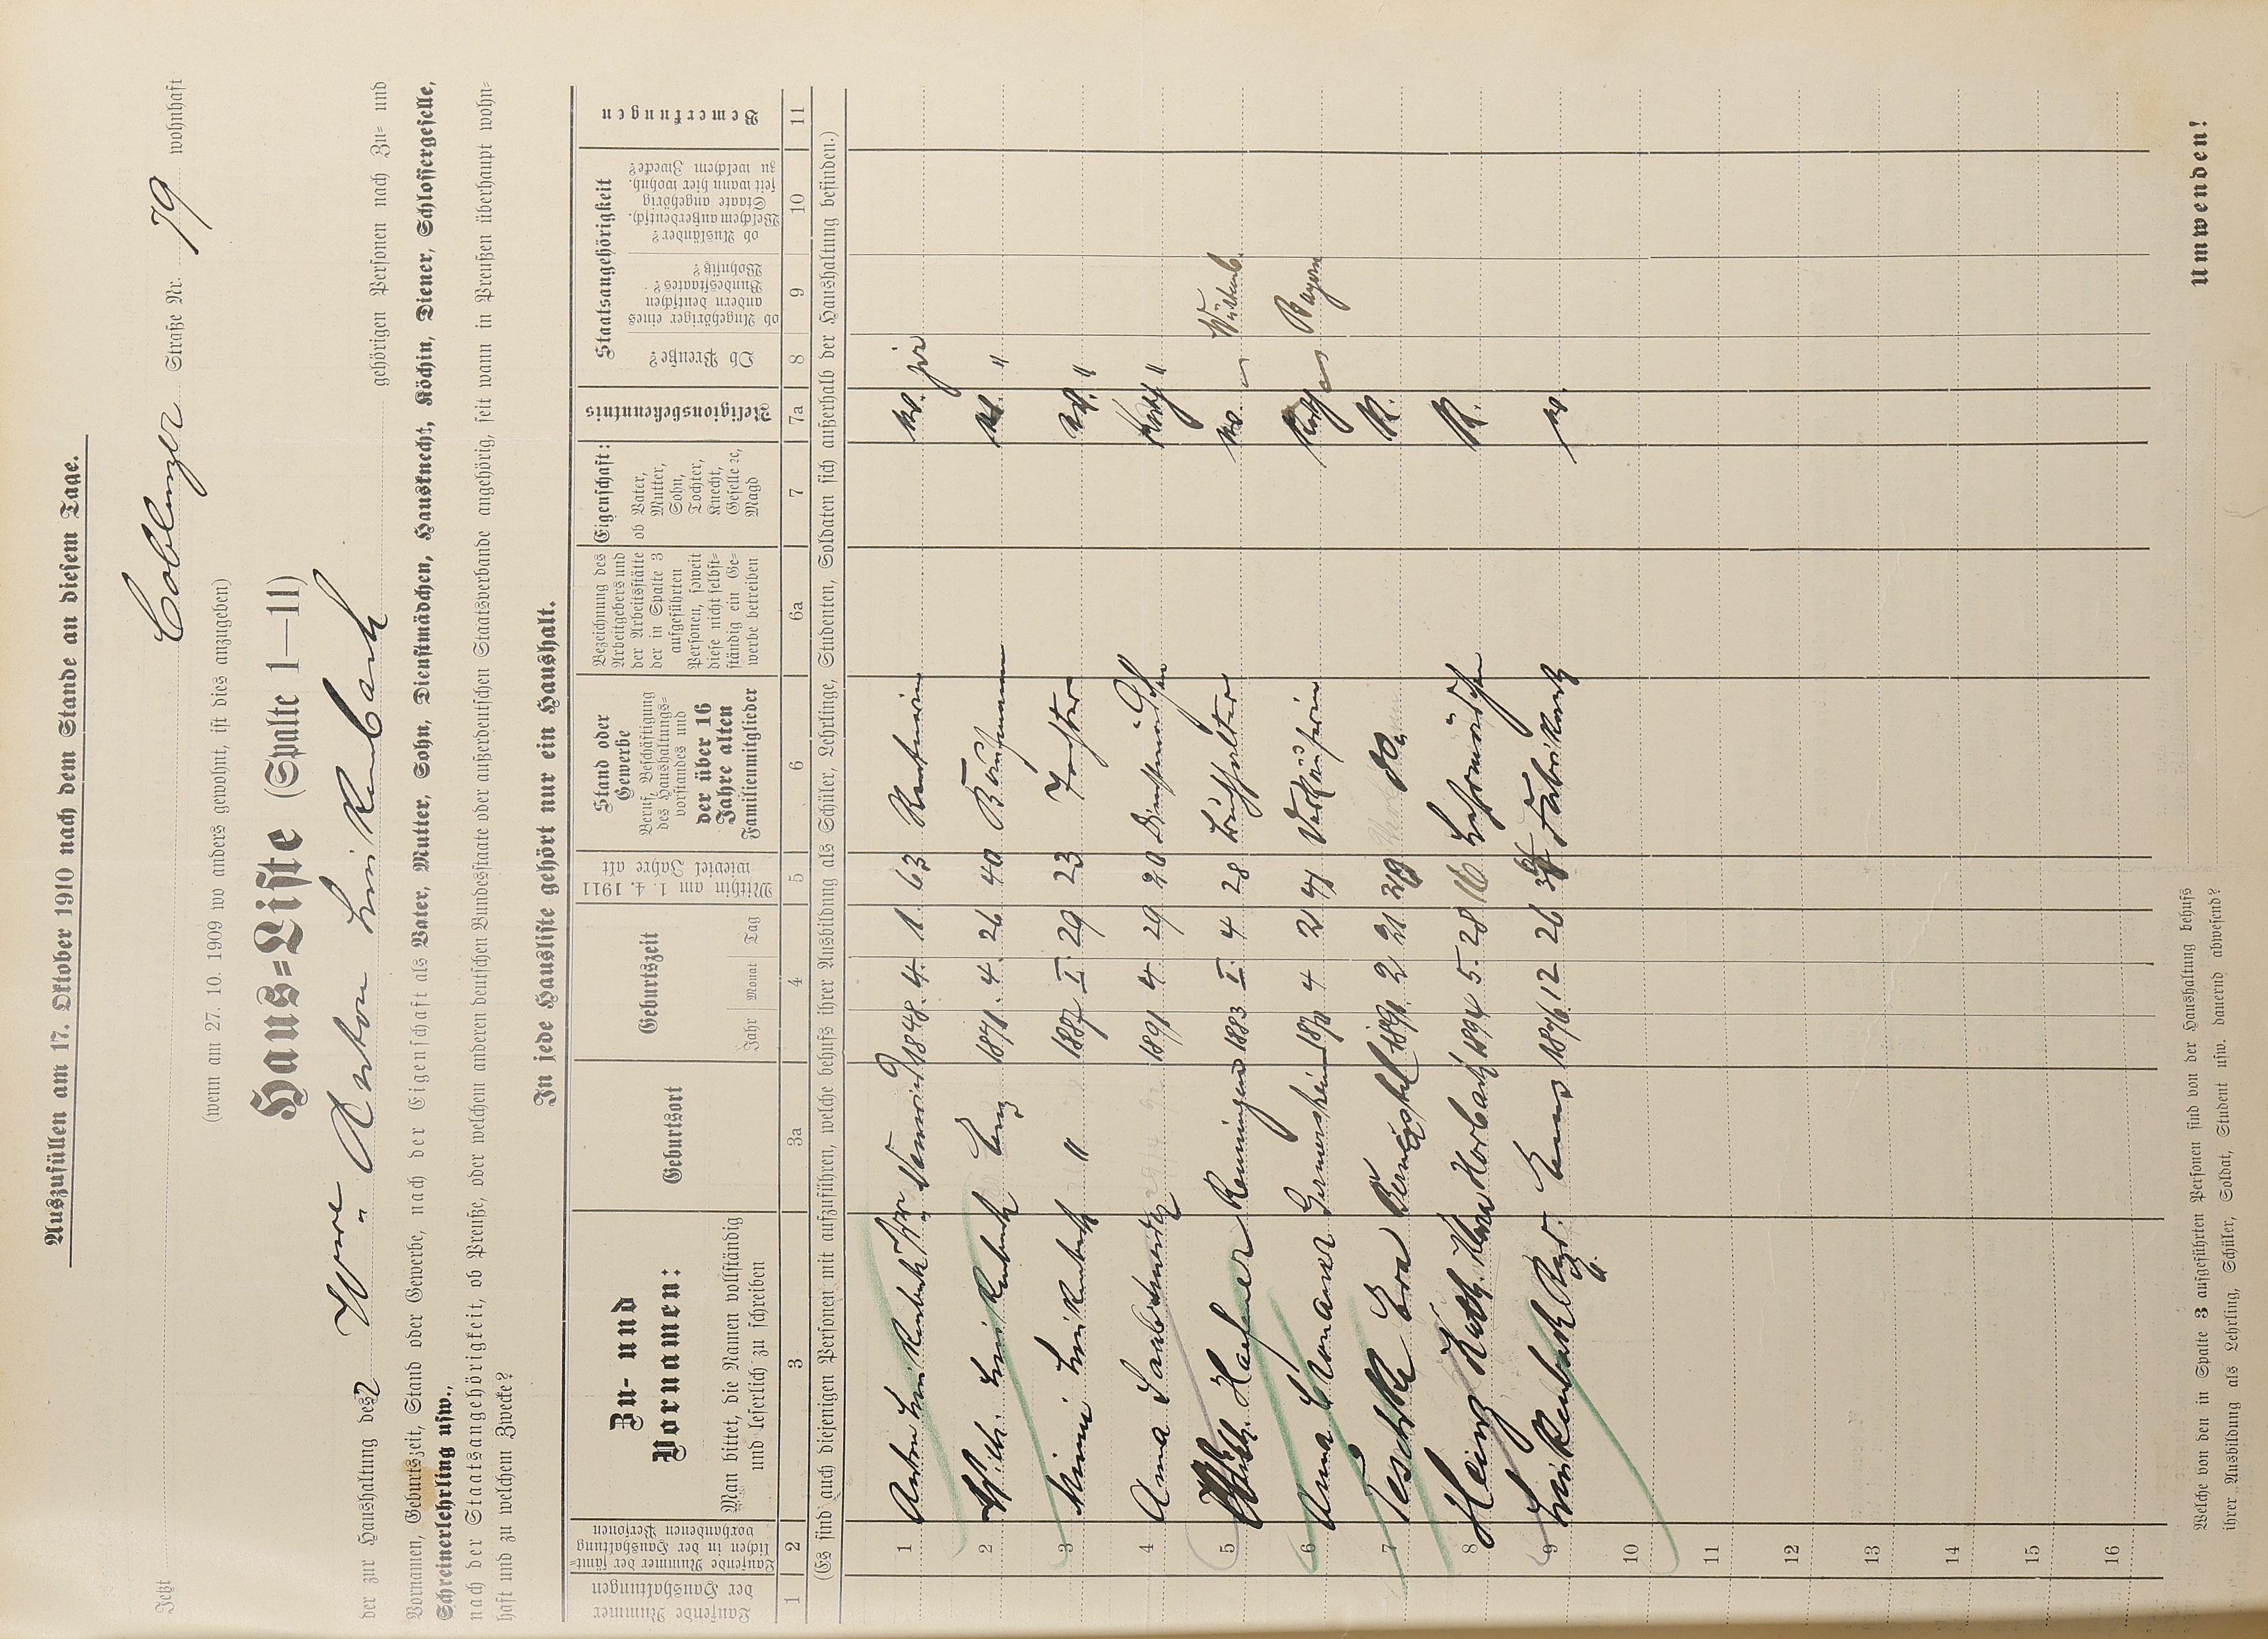 Auszufüllen am 17. Oktober 1910 nach dem Stande an diesem Tage.
Jetzt Coblenzer Straße Nr. 79 wohnhaft
(wenn am 27. 10. 1909 wo anders gewohnt, ist dies anzugeben)
Haus=Liste (Spalte 1—11)
der zur Haushaltung des Wwe. Anton Linkenbach gehörigen Personen nach Zu= und
Vornamen, Geburtszeit, Stand oder Gewerbe, nach der Eigenschaft als Vater, Mutter, Sohn, Dienstmädchen, Hausknecht, Köchin, Diener, Schlossergeselle,
Schreinerlehrling usw.,
nach der Staatsangehörigkeit, ob Preuße, oder welchem anderen deutschen Bundesstaate oder außerdeutschen Staatsverbande angehörig, seit wann in Preußen überhaupt wohn=
haft und zu welchem Zwecke?
In jede Hausliste gehört nur ein Haushalt.
Laufende Nummer der Haushaltungen
Laufende Nummer der sämt=lichen in der Haushaltung vorhandenen Personen
Zu- und Vornamen:
Man bittet, die Namen vollständig und leserlich zu schreiben
Geburtsort
Geburtszeit
Jahr Monat Tag
Mithin am 1. 4. 1911 wieviel Jahre alt
Stand oder Gewerbe
Beruf, Beschäftigung des Haushaltungs=vorstandes und der über 16 Jahre alten Familienmitglieder
Bezeichnung des Arbeitgebers und der Arbeitsstätte der in Spalte 3 aufgeführten Personen, soweit diese nicht selbst=ständig ein Ge=werbe betreiben
Eigenschaft:
ob Vater, Mutter, Sohn, Tochter, Knecht, Geselle ec, Magd
Religionsbekenntnis
Staatsangehörigkeit
Ob Preuße?
ob Angehöriger eines andern deutschen Bundesstaates? Wohnsitz?
ob Ausländer? Welchem außerdeutsch. Staate angehörig seit wann hier wohnh. zu welchem Zwecke?
Bemerkungen
1 2 3 3a 4 5 6 6a 7 7a 8 9 10 11
(Es sind auch diejenigen Personen mit aufzuführen, welche behufs ihrer Ausbildung als Schüler, Lehrlinge, Studenten, Soldaten sich außerhalb der Haushaltung befinden.)
1 Anton Linkenbach Wwe. 1848 4. 1. 63 Rentnerin
2 Wilh. Linkenbach Ems 1871 4. 26 40 Kaufmann "
3 Minni Linkenbach " 1887 I. 29 23 Tochter "
4 Anna 1891 4 29 20 Dienstmädchen Kath "
5 Wilh. Hafner Renningen 1883 I. 4 28 Buchhalter
6 Anna Germersheim 4 21 41 Verkäuferin Kath Bayern
7 Teschke Eva Berncastel 1891 2 21 do. K.
8 Heinz Kath. Horbach 1894 5. 28 16 Lehrmädchen K.
9 Linkenbach Ems 1876 12 26 34 Fabrikant
10
11
12
13
14
15
16
Welche von den in Spalte 3 aufgeführten Personen sind von der Haushaltung behufs
ihrer Ausbildung als Lehrling, Schüler, Soldat, Student usw. dauernd abwesend?
Umwenden!